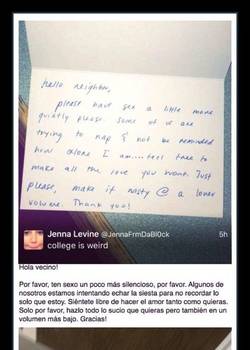 Hello neighbor,
please have sex a little more
quietly please. Some of us are
trying to nap & not be reminded
how alone I am....feel free to
make all the love you want. Just
please, make it nasty @ a lower
volume. Thank you!
Jenna Levine @JennaFrmDaBl0ck 5h
college is weird
Hola vecino!
Por favor, ten sexo un poco más silencioso, por favor. Algunos de
nosotros estamos intentando echar la siesta para no recordar lo
solo que estoy. Siéntete libre de hacer el amor tanto como quieras.
Solo por favor, hazlo todo lo sucio que quieras pero también en un
volumen más bajo. Gracias!